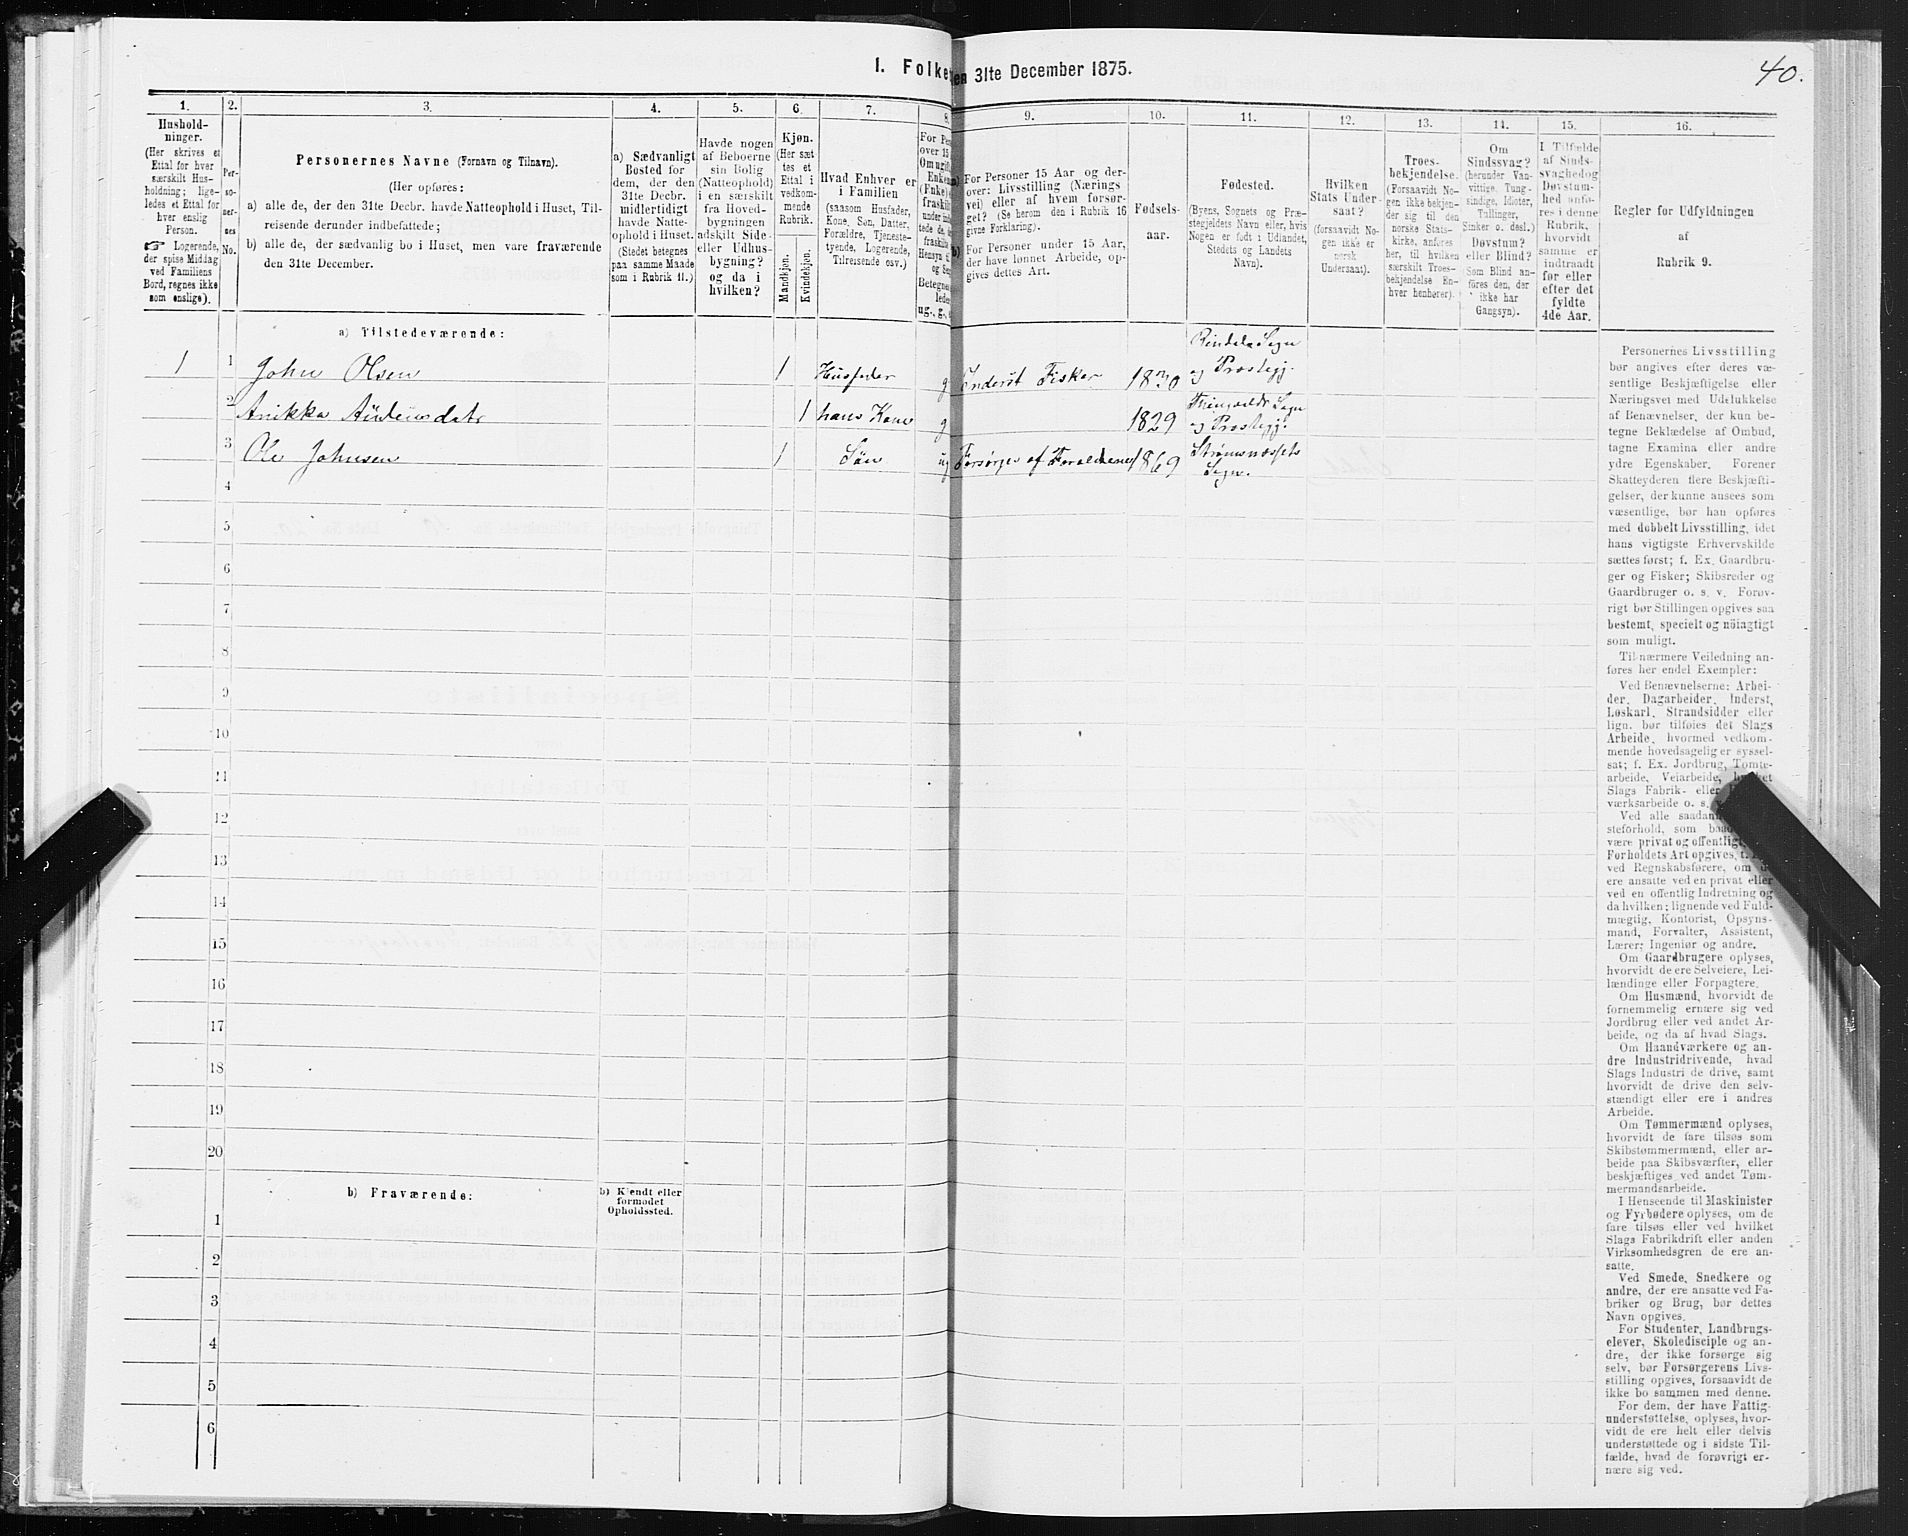 I. Folke
en 31te December 1875.
40.
1.
2.
3.
4.
5.
6.
7.
8.
9.
10.
11.
12.
13.
14.
15.
16.
Hushold-
ninger.
(Her skrives et
Ettal for hver
særskilt Hus-
holdning; lige-
ledes et Ettal for
hver enslig
Person.
☞ Logerende,
der spise Middag
ved Familiens
Bord, regnes ikke
som enslige).
Per-
so-
ner-
nes
No.
Personernes Navne (Fornavn og Tilnavn).
(Her opføres:
a) alle de, der den 31te Decbr. havde Natteophold i Huset, Til-
reisende derunder indbefattede;
b) alle de, der sædvanlig bo i Huset, men vare fraværende
den 31te December.
a) Sædvanligt
Bosted for
dem, der den
31te Decbr.
midlertidigt
havde Natte-
ophold i Huset.
(Stedet betegnes
paa samme Maade
som i Rubrik 11.)
Havde nogen
af Beboerne
sin Bolig
(Natteophold)
i en særskilt
fra Hoved-
bygningen
adskilt Side-
eller Udhus-
bygning?
og da i
hvilken?
Kjøn.
(Her sæt-
tes et
Ettal i
vedkom-
mende
Rubrik.
Mandkjøn.
Kvindekjøn.
Hvad Enhver er
i Familien
(saasom Husfader,
Kone, Søn, Datter,
Forældre, Tjeneste-
tyende, Logerende,
Tilreisende osv.)
For Pe
over 15
Om ugift
Enkem
(Enke) e
fraskilt
under ind
tede de,
fraskille
Hensyn t
og Se
Betegne
lede
ug., g.,
a) For Personer 15 Aar og der-
over: Livsstilling (Nærings
vei) eller af hvem forsør-
get? (Se herom den i Rubrik 16
givne Forklaring).
b) For Personer under 15 Aar,
der have lønnet Arbeide, op-
gives dettes Art.
Fødsels-
aar.
Fødested.
(Byens, Sognets og Præ-
stegjeldets Navn eller, hvis
Nogen er født i Udlandet,
Stedets og Landets
Navn).
Hvilken
Stats Under-
saat?
(forsaavidt No-
gen ikke er
norsk
Undersaat).
Troes-
bekjendelse.
(Forsaavidt No-
gen ikke bekjen-
der sig til den
norske Stats-
kirke, anføres
her, til hvilken
særskilt Troes-
bekjendelse En-
hver henhører).
Om
Sindssvag?
(herunder Van-
vittige, Tung-
sindige, Idioter,
Tullinger,
Sinker o. desl.)
Døvstum?
eller Blind?
(Som Blind an-
føres den, der
ikke har
Gangsyn).
I Tilfælde
af Sinds-
svaghed og
Døvstum-
hed anfø-
res i denne
Rubrik,
hvorvidt
samme er
indtraadt
før eller
efter det
fyldte
4de Aar.
Regler før Udfyldningen
af
Rubrik 9.
a) Tilstedeværende:
1 1 John Olsen 1 Husfader g Inderst Fisker 1830 Rindals Sogn
og Præstegj.
2 Anikka 1 hans Kone g 1829 Sogn
og Præstegj.
3 Ole Johnsen 1 Søn ug Forsørges af Forældrene 1869 Strømsnæssets
Sogn.
4
5
6
7
8
9
10
11
12
13
14
15
16
17
18
19
20
b) Fraværende:
b) Kjendt eller
formodet
Opholdssted.
1
2
3
4
5
6
Personernes Livsstilling
bør angives efter deres væ-
sentlige Beskjæftigelse eller
Næringsvei med Udelukkelse
af Benævnelser, der kun be-
tegne Beklædelse af Ombud,
tagne Examina eller andre
ydre Egenskaber. Forener
Skatteyderen flere Beskjæfti-
gelser, der kunne ansees som
væsentlige, bør han opføres
med dobbelt Livsstilling, idet
hans vigtigste Erhvervskilde
sættes først; f. Ex. Gaardbru-
ger og Fisker; Skibsreder og
Gaardbruger o. s. v. Forøv-
rigt bør Stillingen opgives saa
bestemt, specielt og nöiagtigt
som muligt.
Til nærmere Veiledning an-
føres her endel Exempler:
Ved Benævnelserne: Arbei-
der, Dagarbeider, Inderst,
Løskarl, Strandsidder eller
lign. bør tilføies det Slags
Arbeide, hvormed vedkom-
mende hovedsagelig er syssel-
sat; f. Ex. Jordbrug, Tomte-
arbeide, Veiarbeide,
Slags Fabrik- eller
værksarbeide o. s. v.
Ved alle saadan
steforhold, som
være privat og offentlig
Forholdets Art opgives,
ved Regnskabsførere, om
ere ansatte ved en privat eller
ved en offentlig Indretning og
da hvilken; lignende ved Fuld-
mægtig, Kontorist, Opsyns-
mand, Forvalter, Assistent,
Lærer; Ingeniør og andre.
Om Gaardbrugere oplyses,
hvorvidt de ere Selveiere, Lei-
lændinge eller Forpagtere.
Om Husmænd, hvorvidt de
fornemmelig ernære sig ved
Jordbrug eller ved andet Ar-
beide, og da af hvad Slags.
Om Haandværkere og an-
dre Industridrivende, hvad
Slags Industri de drive, samt
hvorvidt de drive den selv-
stændigt eller ere i andres
Arbeide.
Om Tømmermænd oplyses,
hvorvidt de fare tilsøs som
Skibstømmermænd, eller ar-
beide paa Skibsværfter, eller
beskjæftiges ved andet Tøm-
mermandsarbeide.
I Henseende til Maskinister
og Fyrbødere oplyses, om de
fare tilsøs eller ved hvilket
Slags Fabrikdrift eller anden
Virksomhedsgren de ere an-
satte.
Ved Smede, Snedkere og
andre, der ere ansatte ved Fa-
briker og Brug, bør dettes
Navn opgives.
For Studenter, Landbrugs-
elever, Skoledisciple og an-
dre, der ikke forsørge sig
selv, bør Forsørgerens Livs-
stilling opgives, forsaavidt de
ikke bo sammen med denne.
For dem, der have Fattig-
understøttelse, oplyses, hvor-
vidt de ere helt eller delvis
understøttede og i sidste Til-
fælde, hvad de forøvrigt er-
nære sig ved.